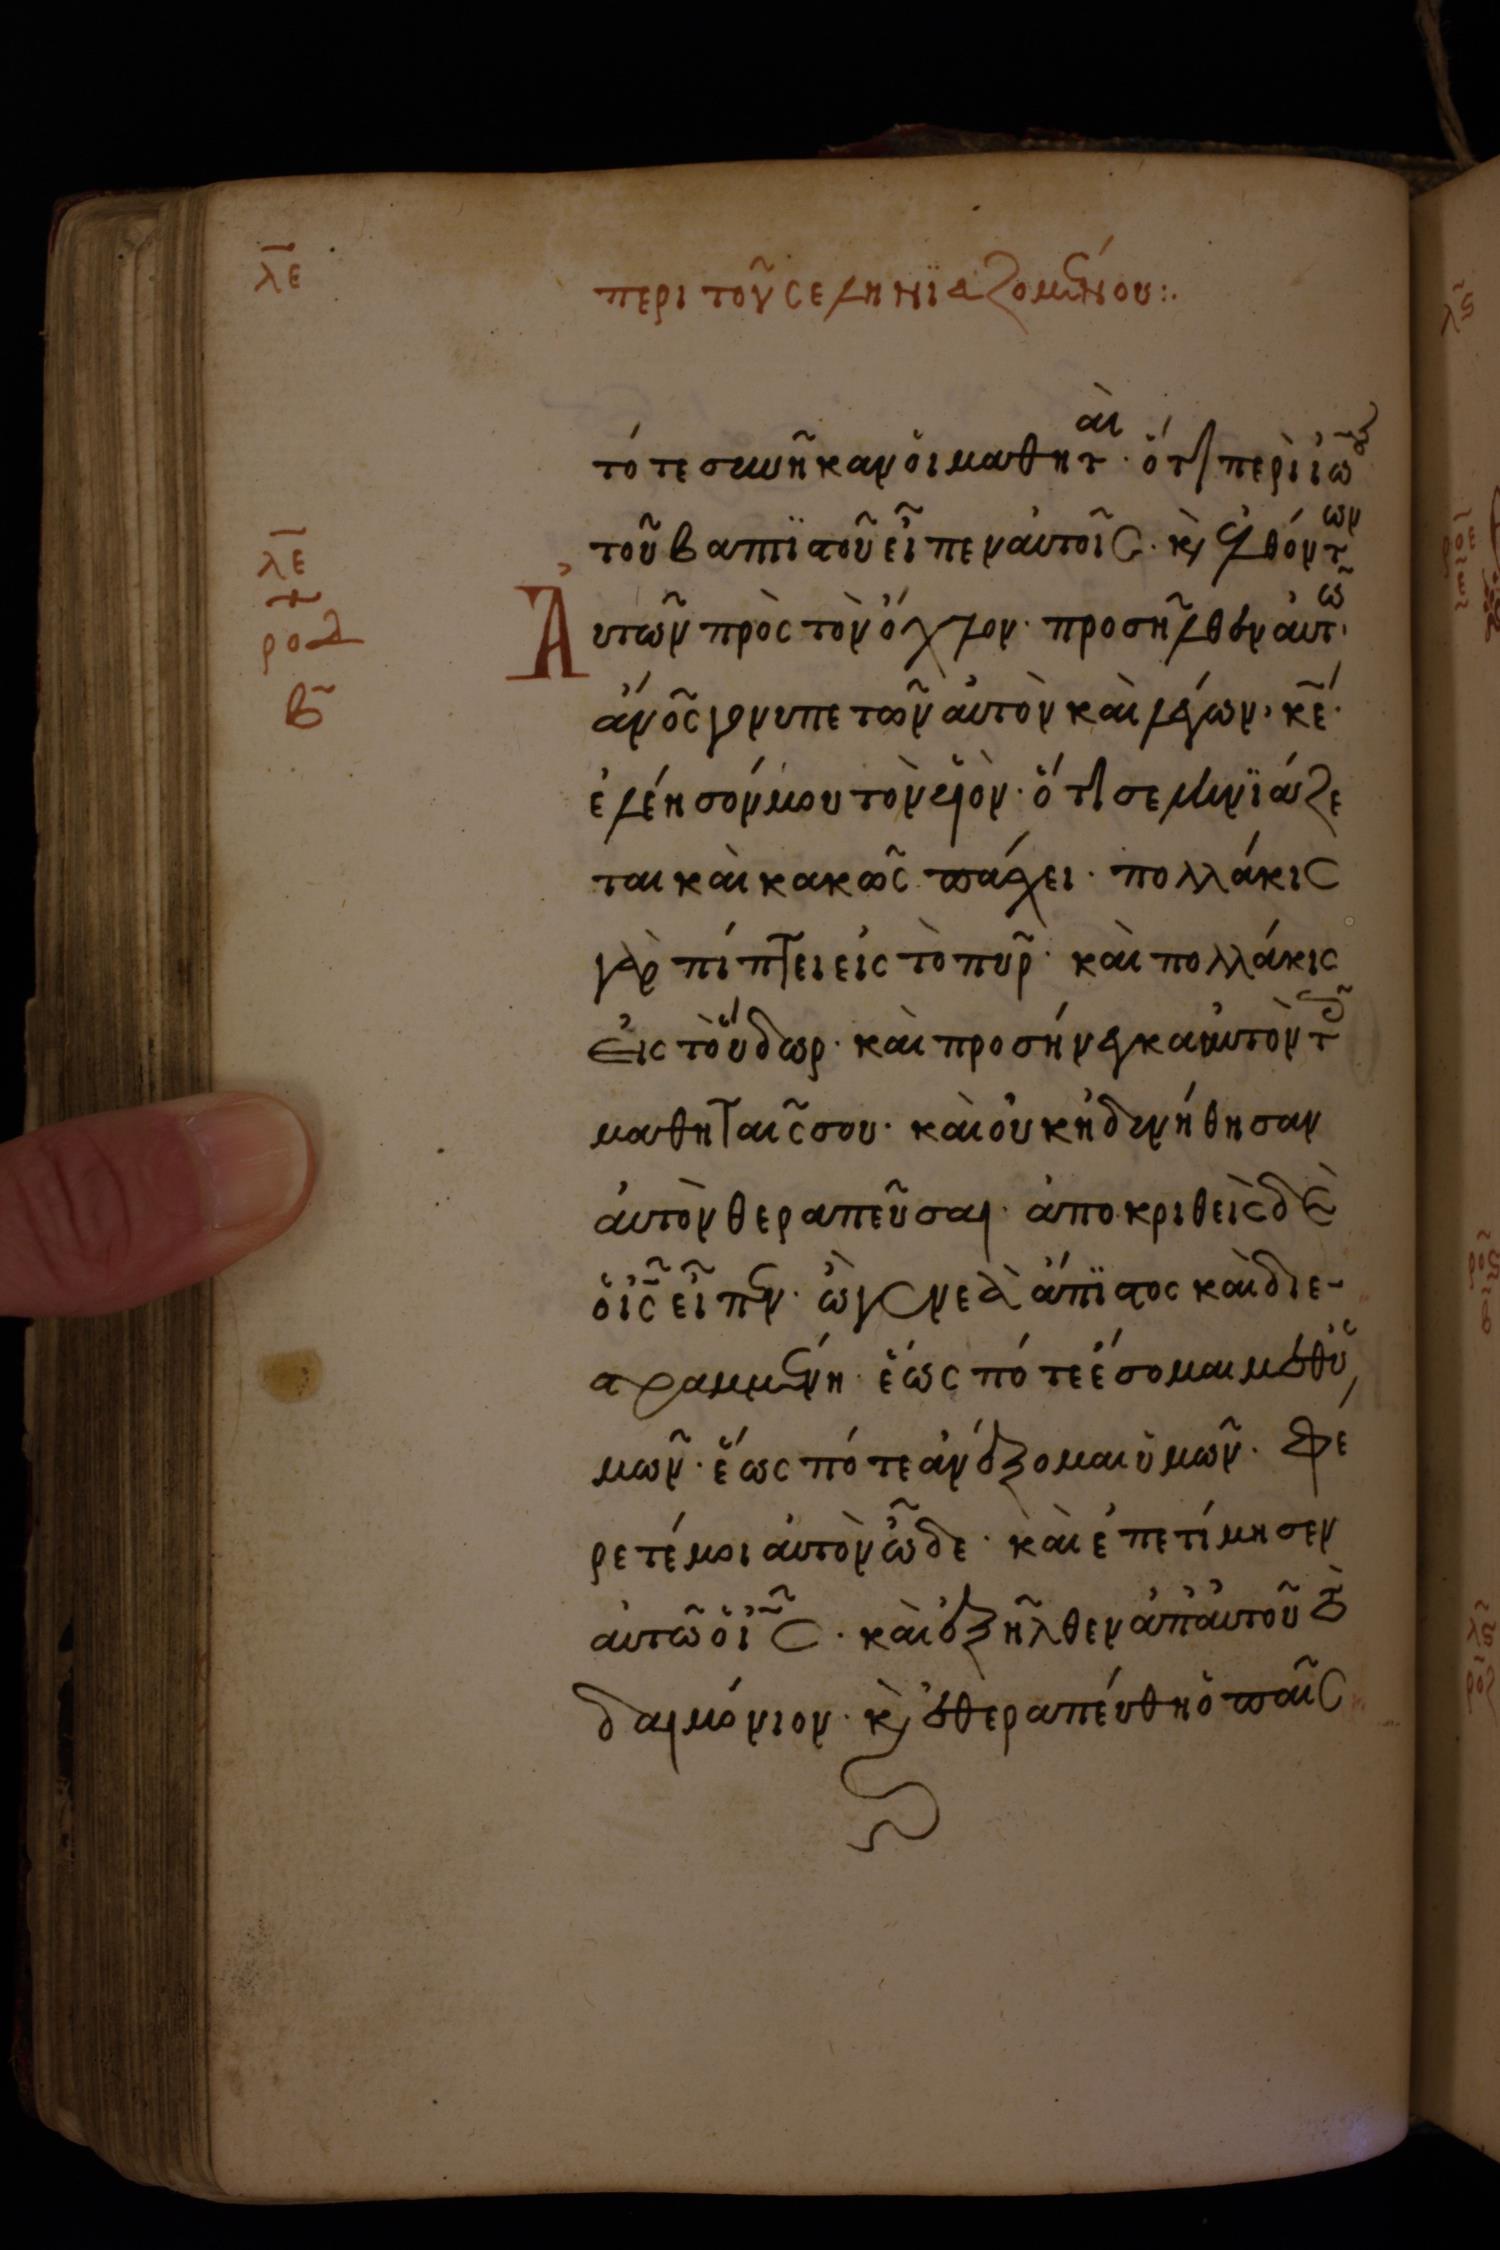 λε
περι τοῦ σεληνϊαζομένου:.
τότε συνῆκαν ὁι μαθητὰι · ὅτι περὶ ἰω
τοῦ βαπτϊστοῦ εἶπεν ἀυτοῖς · κὶ ἐλθόντων
λε
Ἀυτῶν πρὸς τὸν ὄχλον · προσῆλθεν ἀυτῶ ·
ροδ
β
ἄνος γονυπετῶν ἀυτὸν κὰι λέγων · κε ·
ἐλέησόν μου τὸν υἱὸν · ὅτι σεληνϊάζε
ται κὰι κακῶς πάσχει · πολλάκις
γὰρ πίπτει εἰς τὸ πυρ · κὰι πολλάκις
εἰς τὸ ὕδωρ · κὰι προσήνεγκα ἀυτὸν τοῖς
μαθηταῖς σου · κὰι οὐκ ἠδυνήθησαν
ἀυτὸν θεραπεῦσαι · ἀποκριθεὶς δὲ
ὁ ις εἶπεν · ὦ γενεὰ ἄπϊστος κὰι διε-
στραμμένη · ἕως πότε ἔσομαι μεθ ὑ
μῶν · ἕως πότε ἀνέξομαι ὑμῶν · φέ
ρετέ μοι ἀυτὸν ὧδε · κὰι ἐπετίμησεν
ἀυτῶ ὁ ις · κὰι ἐξῆλθεν ἀπ ἀυτοῦ τὸ
δαιμόνιον · κὶ ἐθεραπέυθη ὁ παῖς